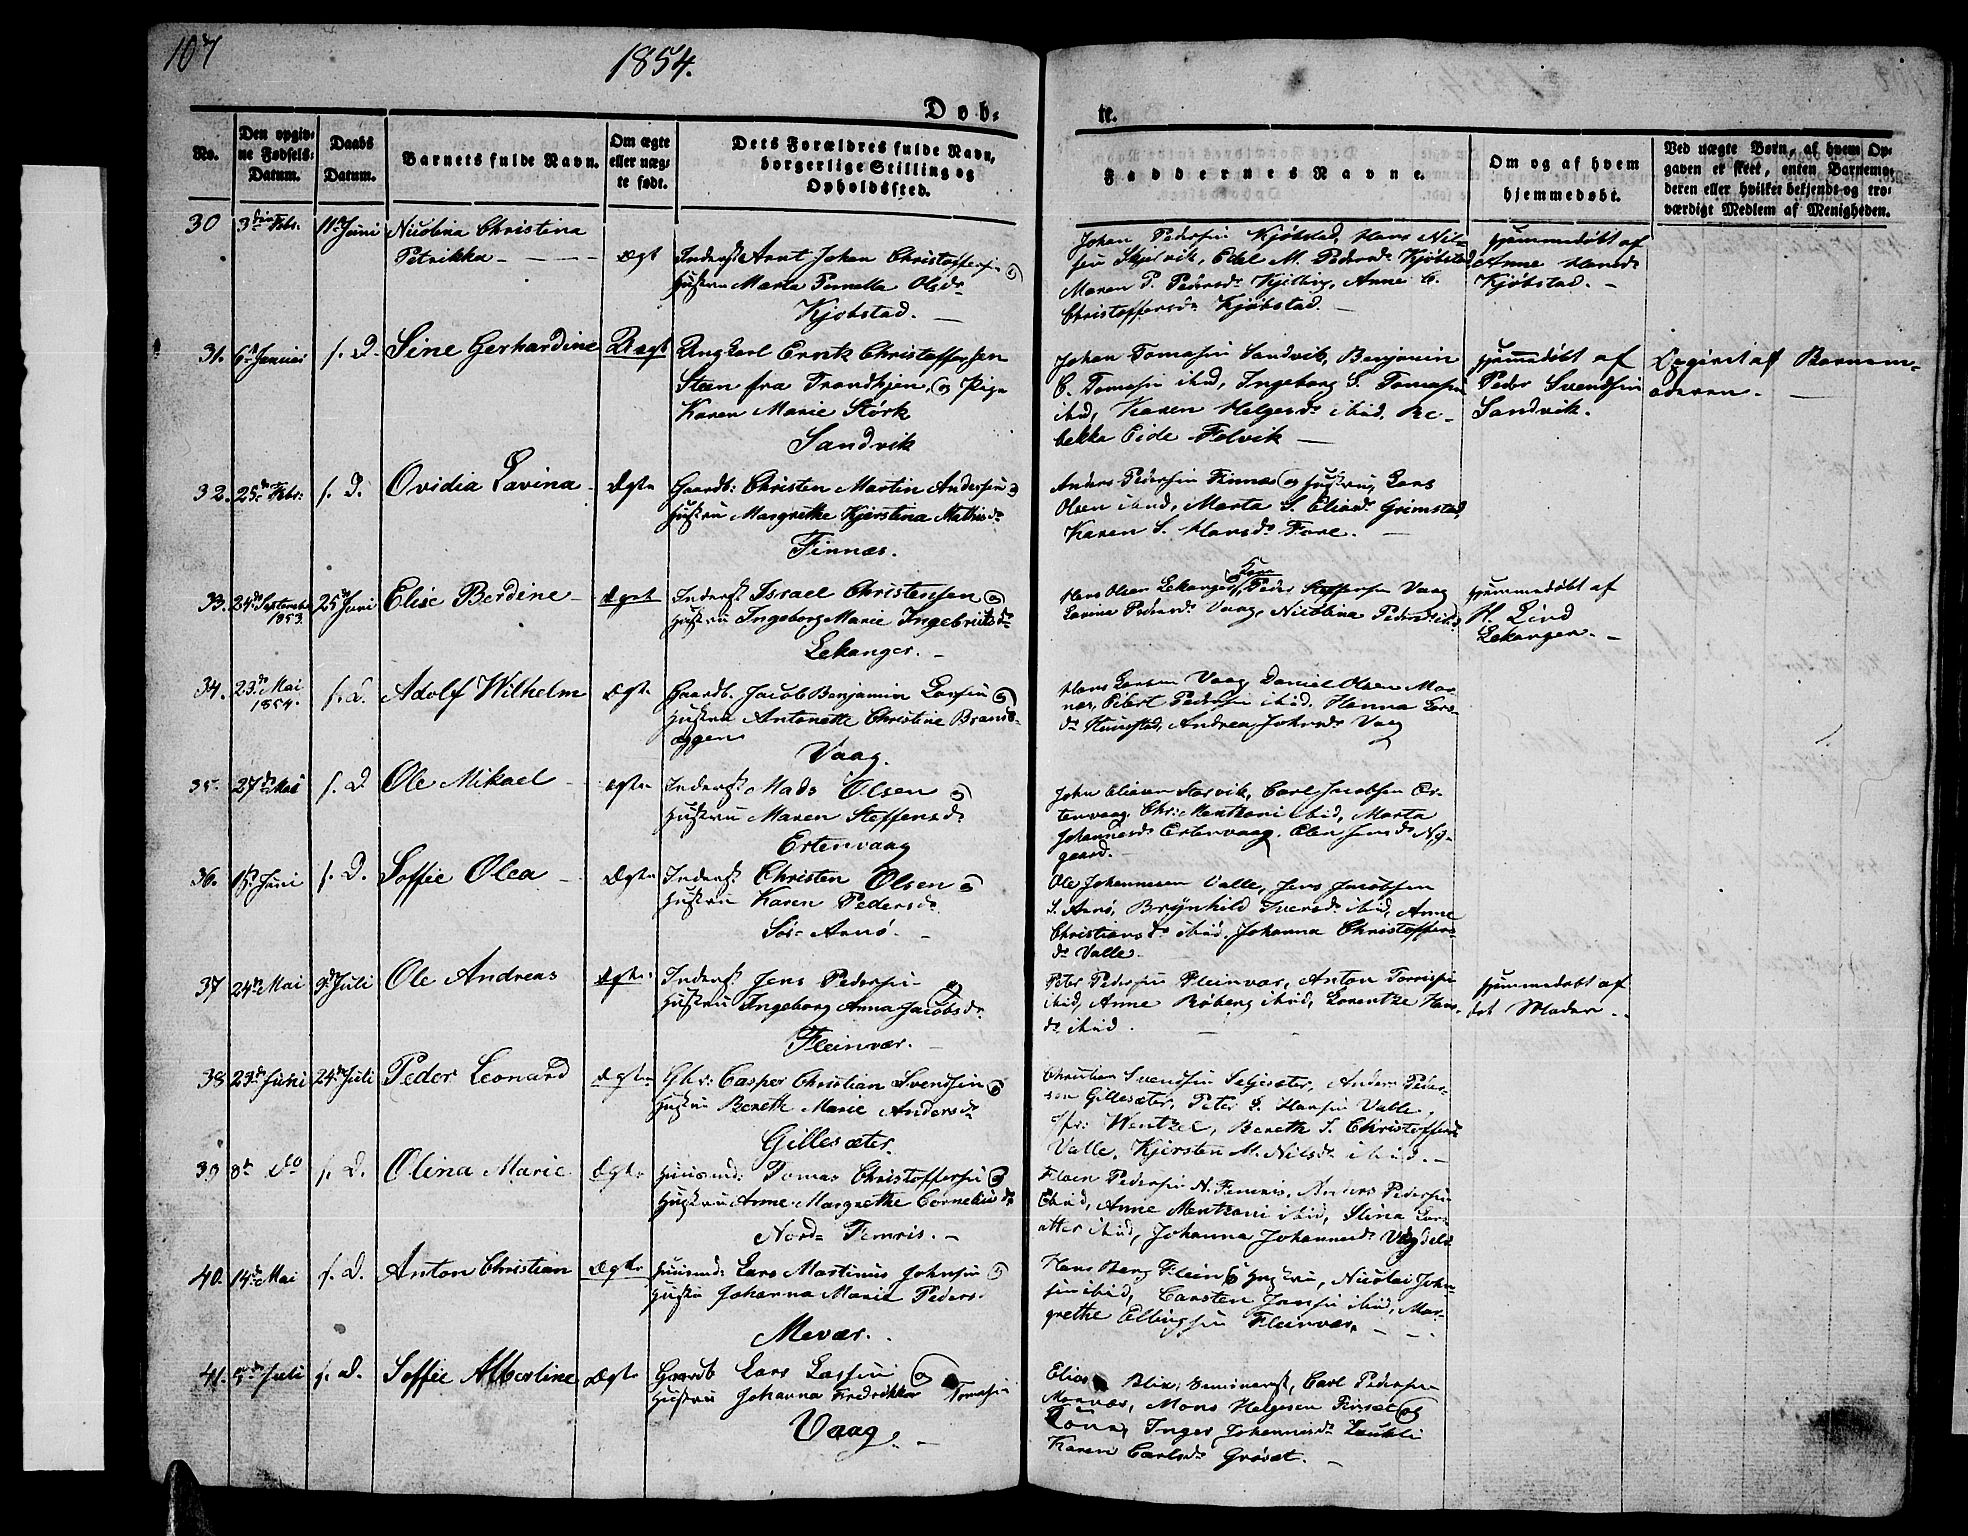 107
1854.
Døb-
te.
No.
Den opgiv-
ne Fødsels-
Datum.
Daabs
Datum.
Barnets fulde Navn.
Om ægte
eller uæg-
te født.
Dets Forældres fulde Navn,
borgerlige Stilling og
Opholdssted.
Faddernes Navne.
Om og af hvem
hjemmedøbt.
Ved uægte Børn, af hvem Op-
gaven er skeet, enten Barnemo-
deren eller hvilket bekjendt og tro-
værdigt Medlem af Menigheden.
30 3die Febr. 11te Juni Nicolina Christina
Petrikka Ægt Inderst Arnt Johan Christoffersen og
Hustru Marta Pernella Olsdr
Kjobstad.
Johan Pedersen Kjøbstad, Hans Nil-
sen Skjelvik, Edel M. Pedersdr Kjøbstad
Maren P. Pedersdr Kjelling, Anne C.
Christoffersdr Kjøbstad.
hjemmedøbt af
Anne Hansdr
Kjøbstad.
31. 6te Januar s. D. Sine Gerhardine Uægt Ungkarl Christoffersen
Steen fra Trondhjem, og Pige
Karen Marie Størk
Sandvik
Johan Tomasen Sandvik, Benjamin
C. Tomasen ibid, Ingeborg S. Tomasen
ibid, Karen Helgesdr ibid. Re-
bekka Eide Felvik
hjemmedøbt af
Peder Svendsen
Sandvik.
Opgivet af Barnem-
oderen.
32. 25de Febr: s. D. Ovidia Lavina Ægte Gaardb: Christen Martin Andersen og
Hustru Margrethe Kjerstina Mathisdr
Finnæs.
Anders Pedersen Finnæs og Hustru, Lars
Olsen ibid, Marta S. Eliasdr Grimstad,
Karen S. Hansdr Fore.
33. 24de September
1853. 25de Juni Elise Berdine Ægte Inderst Israel Christensen og
Hustru Ingeborg Marie Ingebrigtsdr
Lekanger.
Hans Olsen Lekanger og Kone, Peder Steffensen Vaag
Lavina Pedersdr Vaag, Nicolina Pedersdr ibid.
hjemmedøbt af
H. Lind
Lekanger.
34. 23de Mai
1854. s. D. Adolf Wilhelm Ægte Gaardb. Jacob Benjamin Larsen og
Hustru Antonette Christine Brands-
æggen
Vaag.
Hans Larsen Vaag, Daniel Olsen Mar-
næs, Eibert Pedersen ibid, Hanna Lars-
dr Hunstad, Andrea Johnsdr Vaag
35. 27de Mai s. D Ole Mikael Ægte Inderst Mads Olsen og
Hustru Maren Steffensdr
Ertenvaag
John Eliasen Storvik, Carl Jacobsen Er-
tenvaag, Chr: Mentzoni ibid, Marta
Johannesdr Ertenvaag. Elen Jensdr Ny-
gaard.
36. 1ste Juni s. D. Soffie Olea Ægte Inderst Christen Olsen og
Hustru Karen Pedersdr
Sør-Arnø.
Ole Johannesen Valle, Jens Jacobsen
S. Arnø, Brynhild Iversdr ibid, Anne
Christiansdr ibid, Johanna Christoffers-
dr Valle.
37 24de Mai 9de Juli Ole Andreas Ægte Inderst Jens Pedersen og
Hustru Ingeborg Anna Jacobsdr
Fleinvær.
Peter Pedersen Fleinvær, Anton Torrisen
ibid, Anne Röberg ibid, Lorentze Hans-
dr ibid.
hjemmedøbt af
det Moder.
38 23de Juni 24de Juli Peder Leonard Ægte Gbr: Casper Christian Svendsen og
Hustru Bereth Marie Andersdr
Gillesæter.
Christian Svendsen Seljesæter, Anders Peder-
sen Gillesæter, Peter S. Hansen Valle,
Wentzel, Bereth S. Christoffersdr
Valle, Kjersten M. Nilsdr ibid.
39 8de Do s. D. Olina Marie Ægte Huusmd: Tomas Christoffersen og
Hustru Anne Margrethe Corneliusdr
Nord-Femris.
Pedersen N. Femris, Anders Pedersen
ibid, Anne Mentzoni ibid, Stina Lars-
atter ibid, Johanna Johannesdr Vaag
40. 14de Mai s. D. Anton Christian Ægte Huusmd: Lars Martinus Johnsen og
Hustru Johanna Marie Peders.
Mevær.
Hans Berg Flein og Hustru, Nicolai John-
sen ibid, Carsten Jansen ibid, Mar-
grethe Ellingsen Fleinvær.
41. 5te Juli s. D. Soffie Albertine Ægte Gaardb Lars Larsen og
Hustru Johanna Fredrikka Tomasen
Vaag.
Elias Blix, Seminarist, Carl Pedersen
Mevær, Mons Helgesen og
Kone, Inger Johannesdr
Karen Carlsdr Grøsæt.